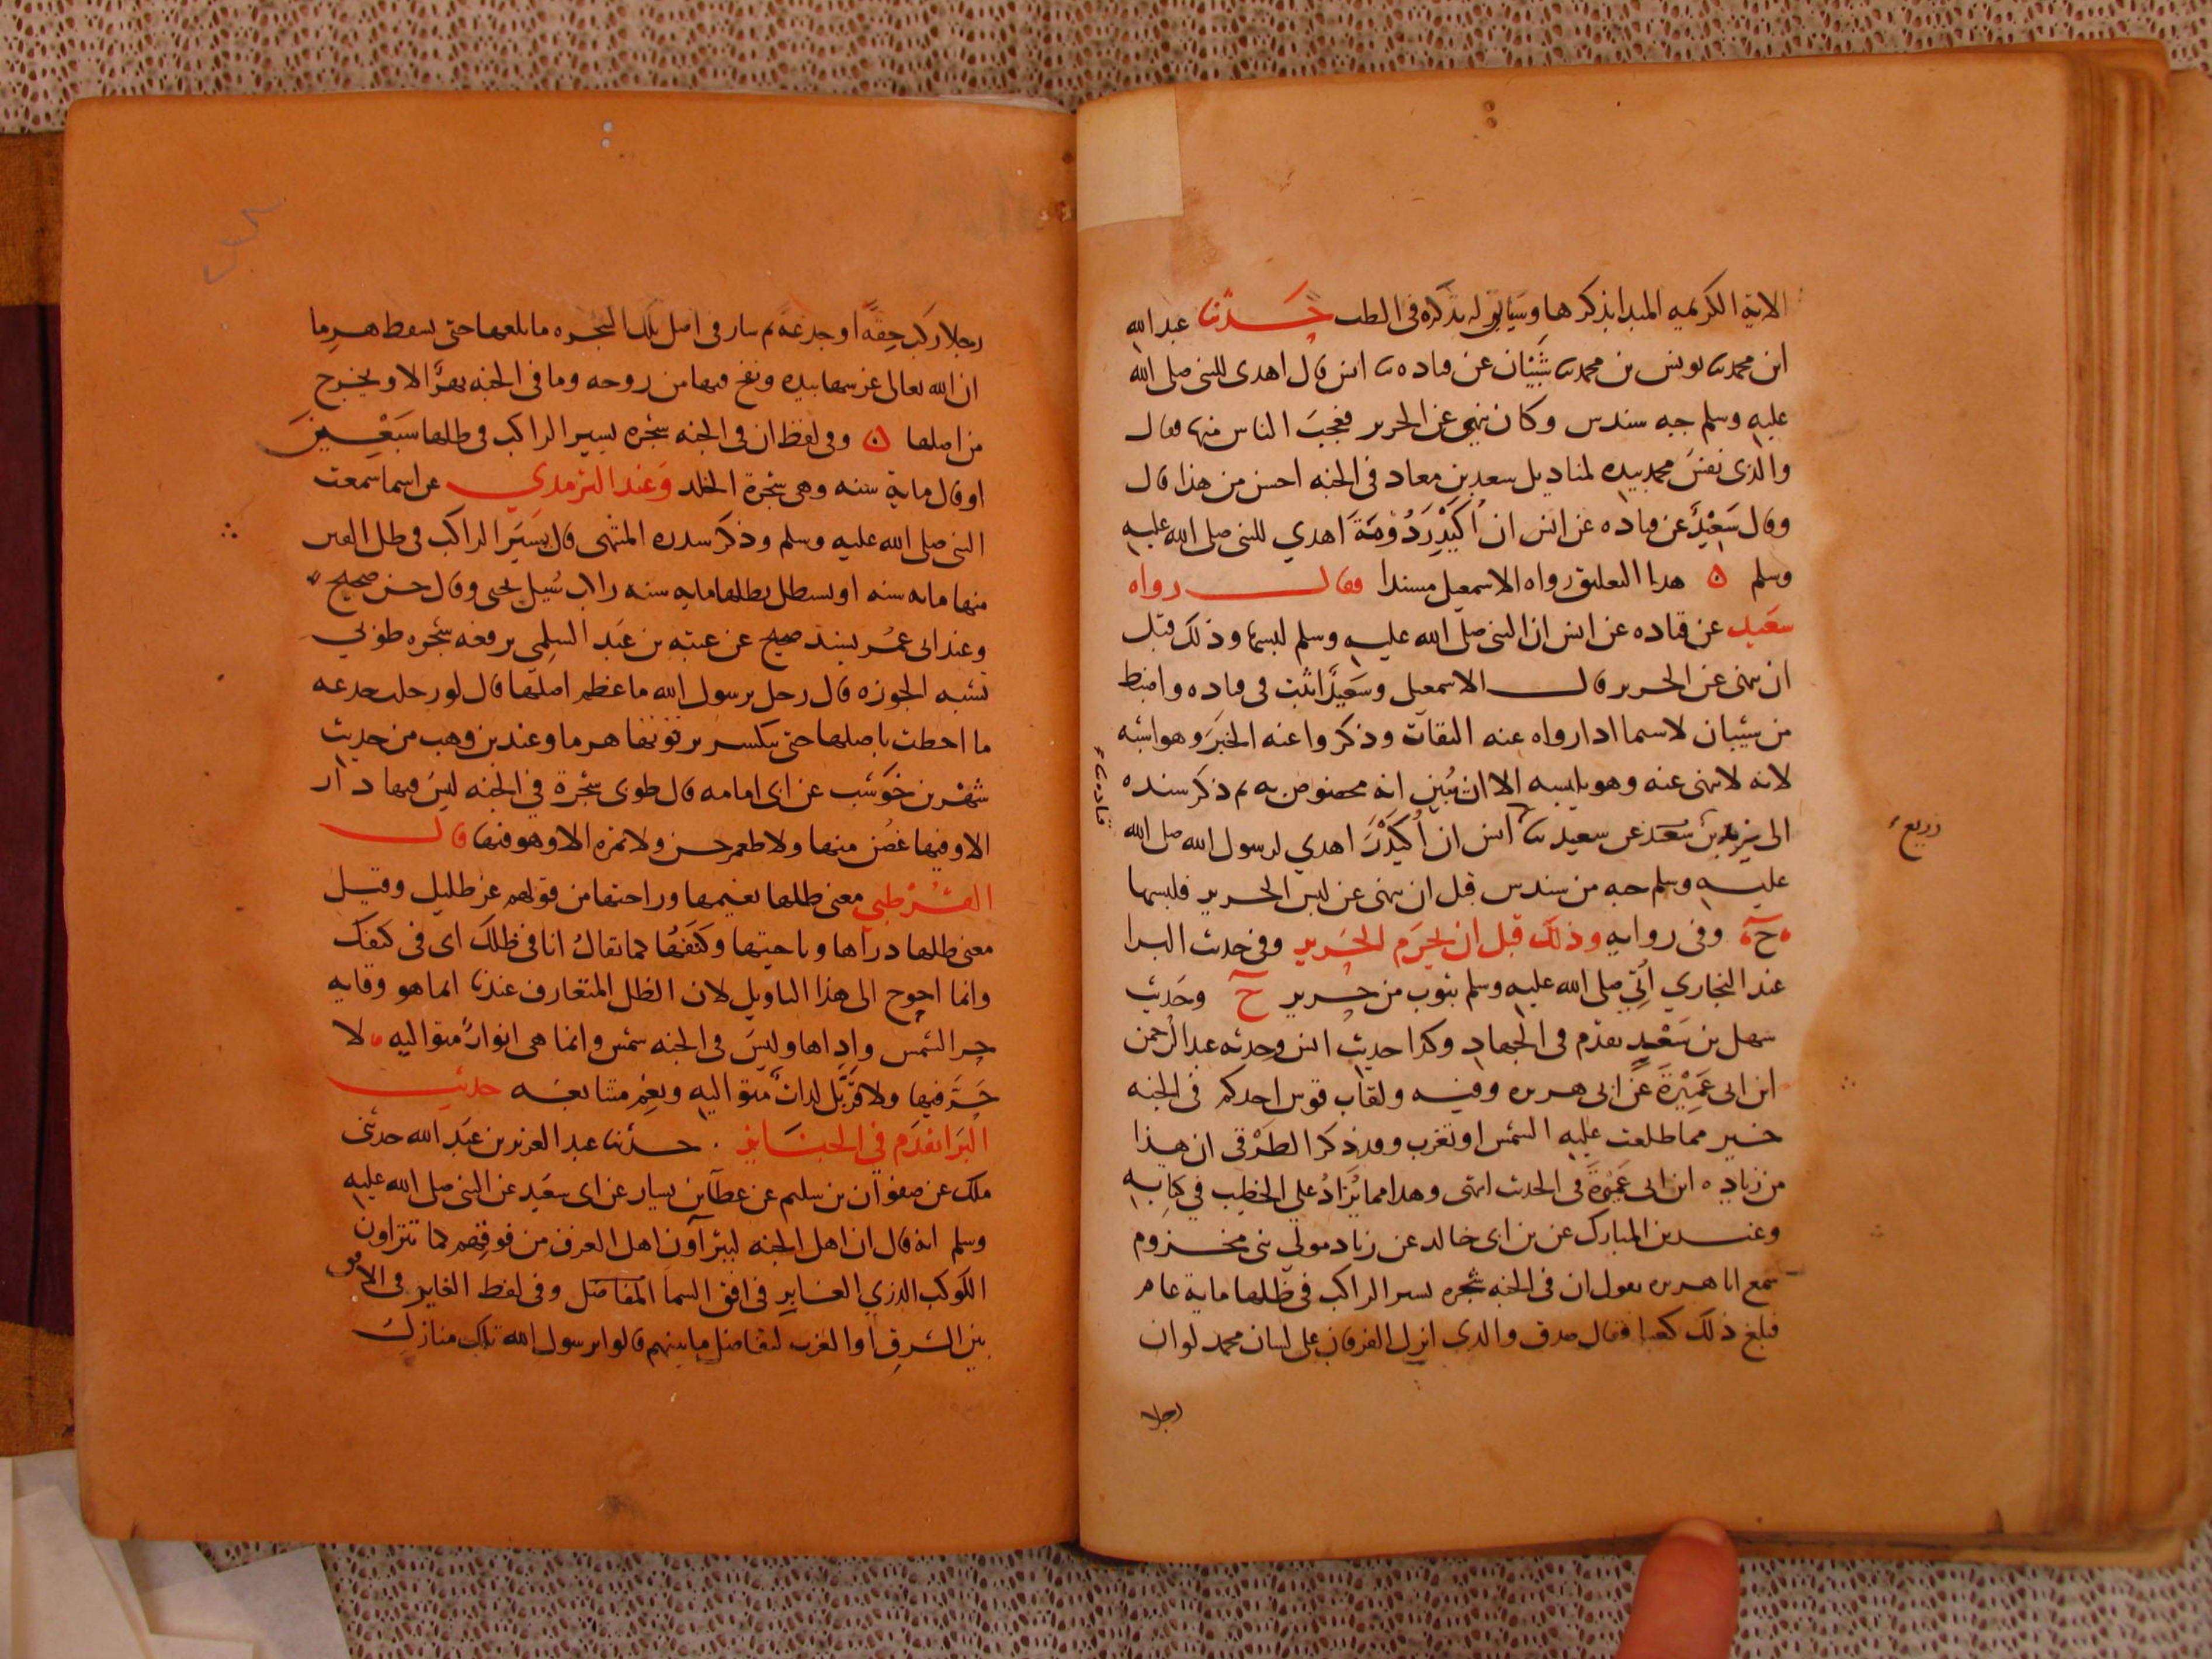 الاية الكريمه المبدا بذكرها وسياتي له تذكره في الطب حدثنا عبد الله
ابن محمد ثنا يونس بن محمد ثنا شيبان عن قتاده ثنا انس قال اهدى للنبي صلى الله
عليه وسلم جبه سندس وكان ينهى عن الحرير فعجب الناس منها فقال
والذى نفس محمد بيده لمناديل سعد بن معاد في الجنه احسن من هذا قال
وقال سعيد عن قتاده عن انس ان اكيدر دومة اهدي للنبي صلى الله عليه
وسلم ۞ هذا التعليق رواه الاسمعيل مسندا فقال رواه
سعيد عن قتاده عن انس ان النبي صلى الله عليه وسلم لبسها وذلك قبل
ان ينهى عن الحرير قال الاسمعيل وسعيد اثبت في قتاده واضبط
من شيبان لاسيما ادا رواه عنه الثقات وذكروا عنه الخبر وهو اشبه
لانه لا ينهى عنه وهو يلبسه الا ان يبين انه مخصوص به ثم ذكر سنده
الى يزيد بن عن سعيد ثنا انس ان اكيدر اهدي لرسول الله صلى الله
قتاده ثنا
زريع
عليه وسلم جبه من سندس قبل ان ينهى عن لبس الحرير فلبسها
ح وفى روايه وذلك قبل ان يحرم الحرير وفي حديث البرا
عند البخاري اتي صلى الله عليه وسلم بثوب من حرير ح وحديث
سهل بن سعد تقدم في الجهاد وكذا حديث انس وحدثه عبد الرحمن
ابن ابى عميرة عن ابى هريره وفيه ولقاب قوس احدكم في الجنه
خير مما طلعت عليه الشمس او تغرب وقد ذكر الطرقي ان هذا
من زياده ابن ابى عميرة في الحديث انتهى وهذا مما يزاد على الخطيب في كتابه
وعند بن المبارك عن بن ابى خالد عن زياد مولى بنى مخزوم
سمع ابا هريره يقول ان في الجنه شجره يسير الراكب في ظلها ماية عام
فبلغ ذلك كعبا فقال صدق والذى انزل الفرقان على لسان محمد لو ان
رجلا
رجلا ركب حقة او جذعه ثم سار في اصل تلك الشجره ما بلغها حتى يسقط هرما
ان الله تعالى غرسها بيده ونفخ فيها من روحه وما في الجنه نهر الا ويخرج
من اصلها ۞ وفى لفظ ان في الجنه شجره يسير الراكب في ظلها سبعين
او قال ماية سنه وهى شجرة الخلد وعند الترمدي عن اسما سمعت
النبي صلى الله عليه وسلم وذكر سدره المنتهى قال يسير الراكب في ظل الفنن
منها مايه سنه او يستظل بظلها مايه سنه راكب شك يحيى وقال حسن صحيح
وعند ابى عمر بسند صحيح عن عتبه بن عبد السلمي يرفعه شجره طوبى
تشبه الجوزه قال رجل يرسول الله ما عظم اصلها قال لو رحلت جدعه
ما احطت باصلها حتى ينكسر ترقوتها هرما وعند بن وهب من حديث
شهر بن حوشب عن ابى امامه قال طوبى شجرة في الجنه ليس فيها دار
الا وفيها غصن منها ولا طعم حسن ولا ثمره الا وهو فيها قال
القرطبي معنى ظلها نعيمها وراحتها من قولهم عز ظليل وقيل
معنى ظلها ذراها وناحيتها وكنفها كما يقال انا في ظلك اى في كنفك
وانما احوج الى هذا التاويل لان الظل المتعارف عندنا انما هو وقايه
حر الشمس واداها وليس في الجنه شمس وانما هى انوار متواليه لا
حر فيها ولا قر بل لذات متواليه ونعم متتابعه حديث
البرا تقدم في الجنايز . حدثنا عبد العزيز بن عبد الله حدثنى
ملك عن صفوان بن سليم عن عطا بن يسار عن ابى سعيد عن النبي صلى الله عليه
وسلم انه قال ان اهل الجنه ليترآون اهل الغرف من فوقهم كما تتراون
الكوكب الدري الغابر في افق السما لتفاضل وفى لفظ الغاير في الافق
بين الشرق او الغرب لتفاضل ما بينهم قالوا يرسول الله تلك منازل